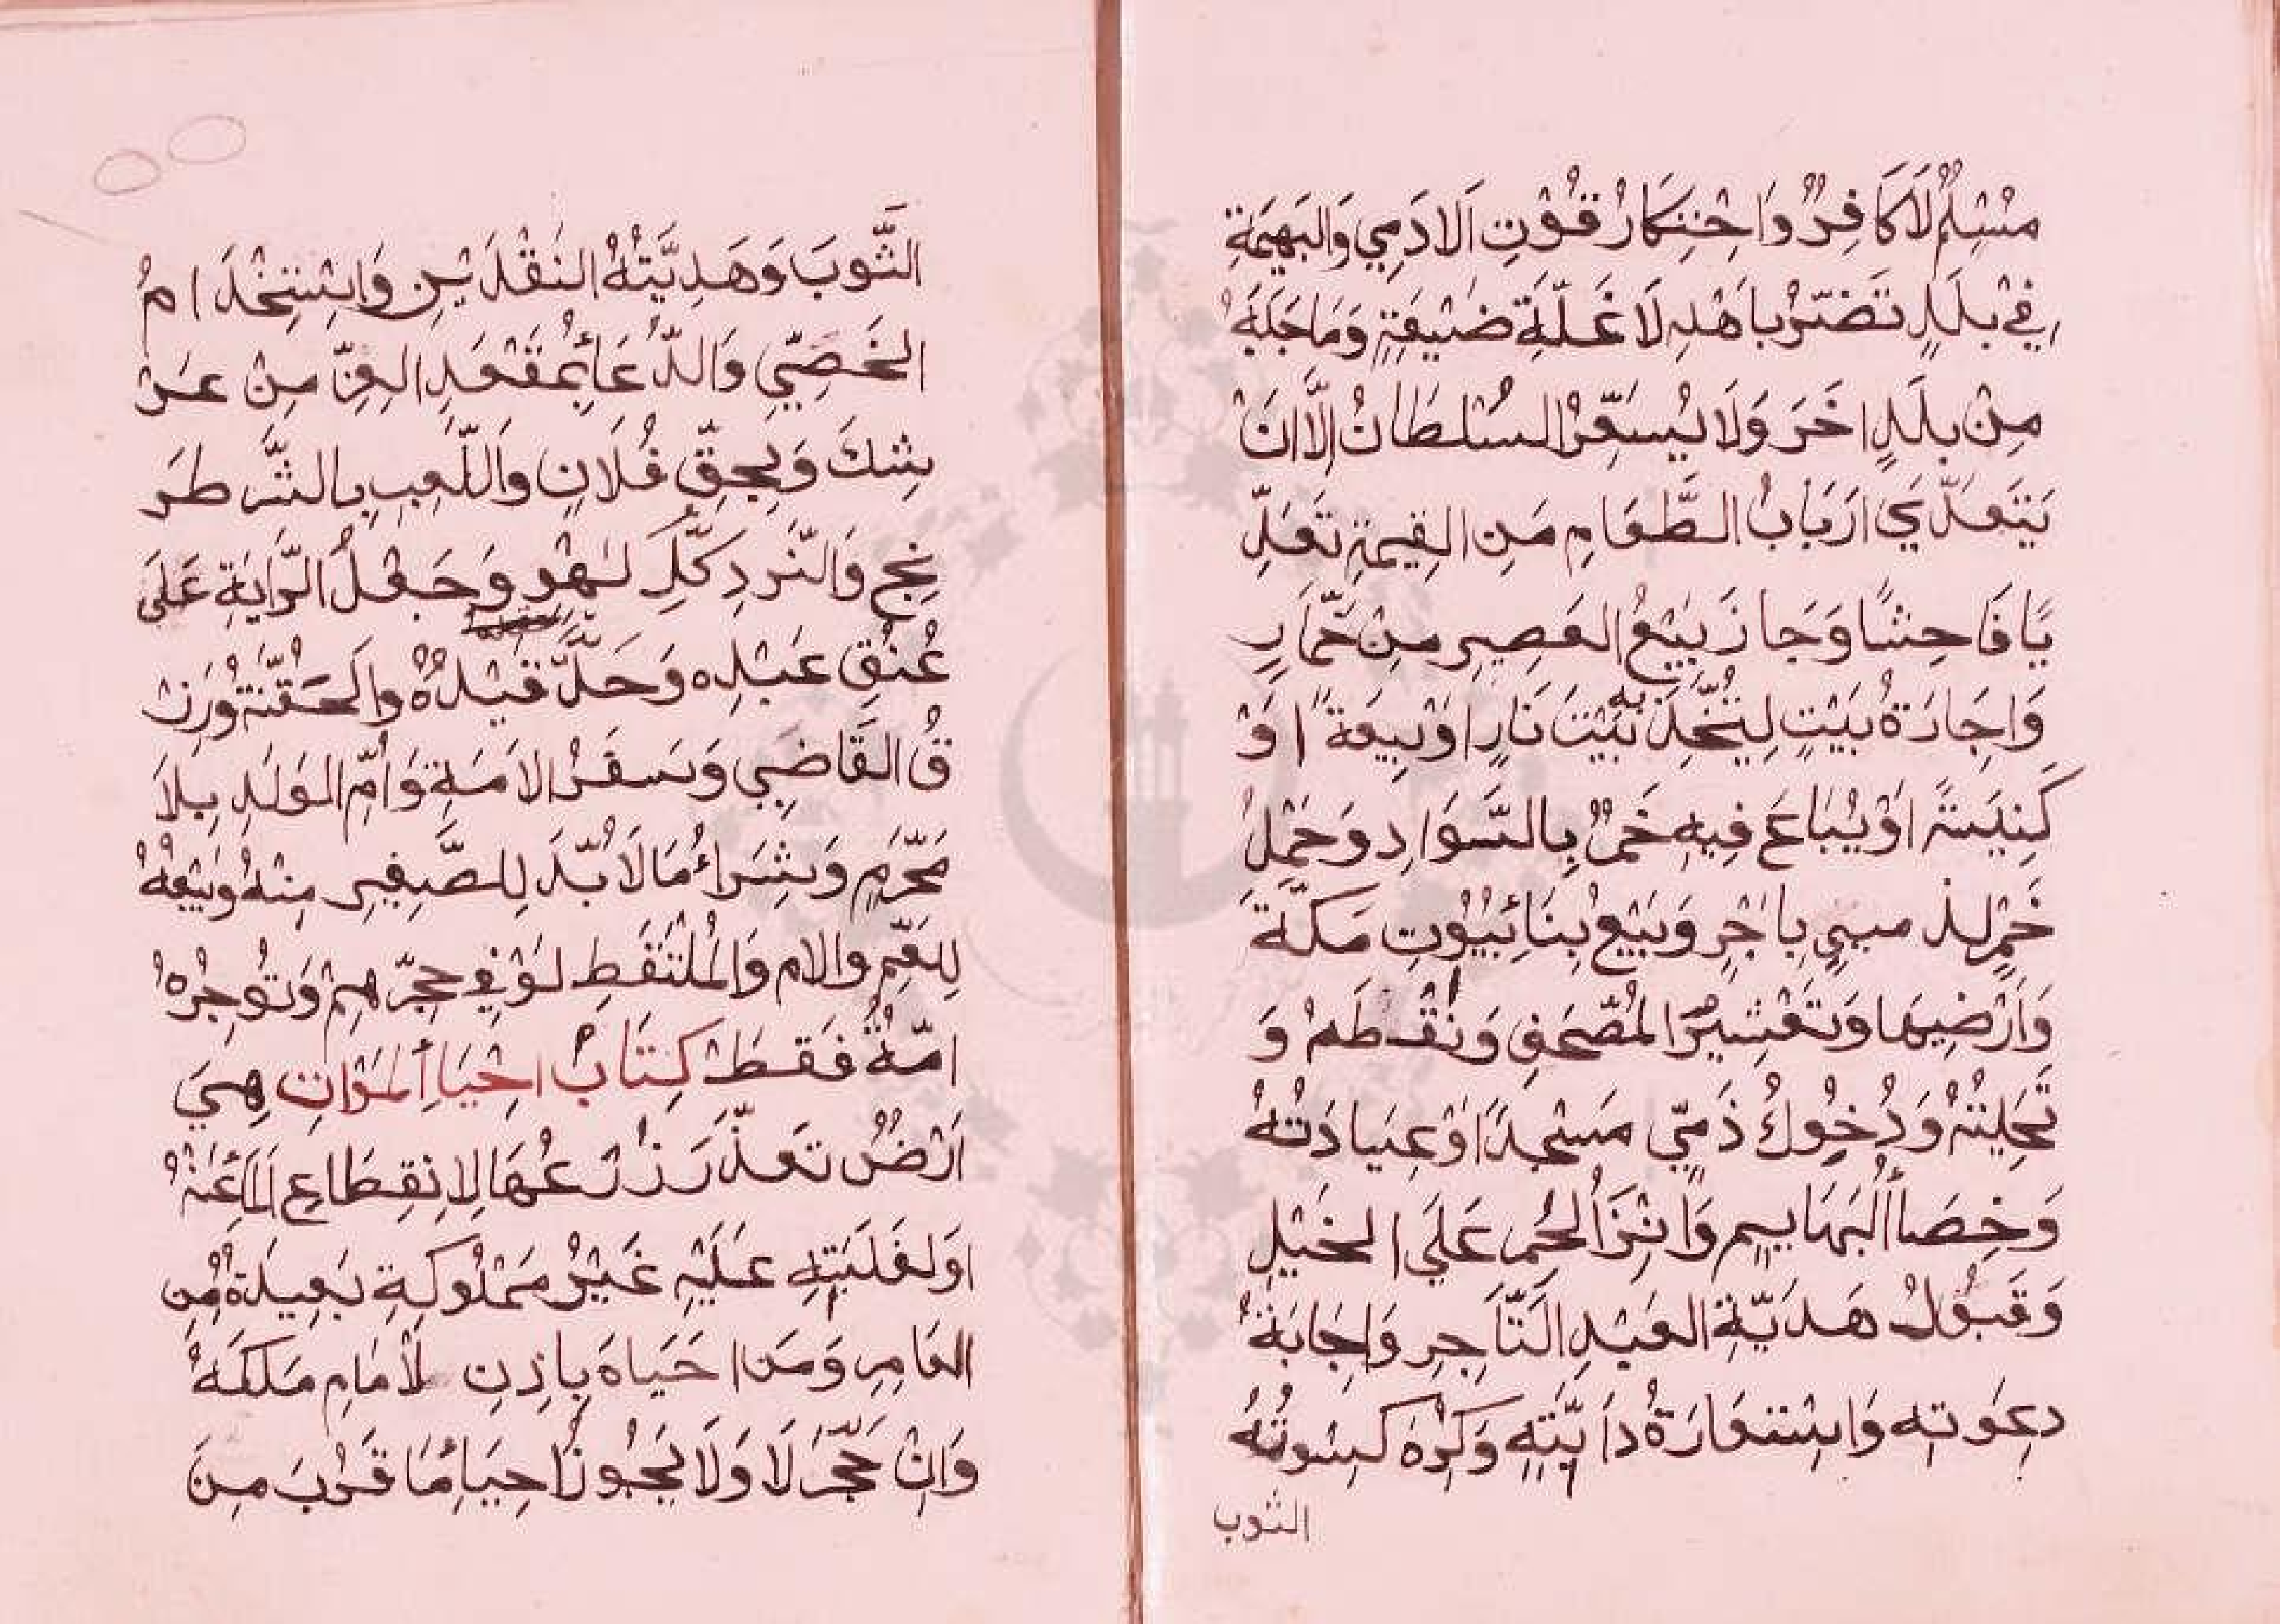 مُسْلِمٌ لَا كَافِرٌ وَاحْتِكَارُ قُوْتِ الَادَمِي وَالبَهِيمَةِ
فِي بَلَدٍ تَضَرُّ بِاَهْلِهِ لَا غَلَّةِ ضَيْعَةٍ وَمَا جَلَبَهُ
مِنْ بَلَدٍ اخَرَ وَلَا يُسَعِّرُ السُلْطَانُ اِلَّا اَنْ
يَتَعَدّيَ ارَبَابُ الطَّعَامِ مَنِ القِيمَةِ تَعَدِّ
يًا فَاحِشًا وَجَازَ بَيْعُ العَصِيرِ مِنْ خَمَّارٍ
وَاِجَارَةُ بَيْتٍ لِيُتَّخَذَ بِه بَيْتَ نَارٍ اوْ بِيعَةً اَوْ
كَنِيسَةً اوْ يُبَاعَ فِيهِ خَمْرٌ بِالسَّوَادِ وَحَمْلُ
خَمْرٍ لِذمي بِاَجْرٍ وَبَيْعُ بِنَائِ بُيُوْتِ مَكَّةَ
وَاَرْضِيهَا وَتَعْشِيْرُ المُصْحَفِ وَنُقَطِهُ وَ
تَحْلِيَتُهُ وَدُخُوْلُ ذَمِّيّ مَسْجِدًا اوْ عِيَادَتُهُ
وَخِصَاأُ البَهَايِمِ وَاِنْزَأُ الحُمُرِ عَلَي الخَيْلِ
وَقَبُوْلُ هَدَيَّةِ العَبْدِ التَّاجِرِ وَاِجَابَةُ
دعَوته وَاسْتِعَارَةُ دَابَّتِهِ وَكُرِهَ كِسْوتُهُ
الثوب
الثَّوبَ وَهَدِيَّتُهُ النَقْدَيْنِ وَاِسْتِخْدَامُ
الخَصِيِّ وَالدُّعَأُ بِمَقْعَدِ العِزِّ مِنْ عَرْ
شِكَ وَبِحِقِّ فُلَانٍ وَاللَّعِبِ بِالشَّطرَ
نجِ وَالنَّرَدِ كُلِّ لَهْوٍ وَجَعْلُ الرَّايَةِ عَلَى
عُنُقِ عَبْدِه وَحَلَّ قَيْدُهُ وَالحَقْنَةُ وُرِزْ
قُ القَاضِي وَسَفَرُ الاَمَةِ وَاُمِّ الوَلَدِ بِلَا
مَحْرَمٍ وَشِرَاءُ مَا لَا بُدَّ لِلصَّغِيرِ مِنْهُ وَبَيْعُهُ
لِلعَمِّ والام وَالمُلْتَقَطِ لَوْ فِي حِجْرِهِمْ وَتُوجِرُهُ
امّهُ فَقَطْ كِتَابُ اِحْيَاءِ المَوَاتِ هِيَ
اَرْضٌ تَعَذَّرَ زُرَعُهَا لِاِنْقِطَاعِ المَاَءِ عَنْهُ
اوَلغَلَبَتِهِ عَلَيْهِ غَيْرُ مَمْلُوكَةِ بَعِيدَةٌ مِن
العَامِرِ وَمَنْ احَيَاهَ بِاِذْنِ لاِمَامِ مَلَكَهُ
وَاِنْ حَجَّرَ لَا وَلَا يَجُوزُ اِحِيَاءُ مَا قَرُبَ مِنَ